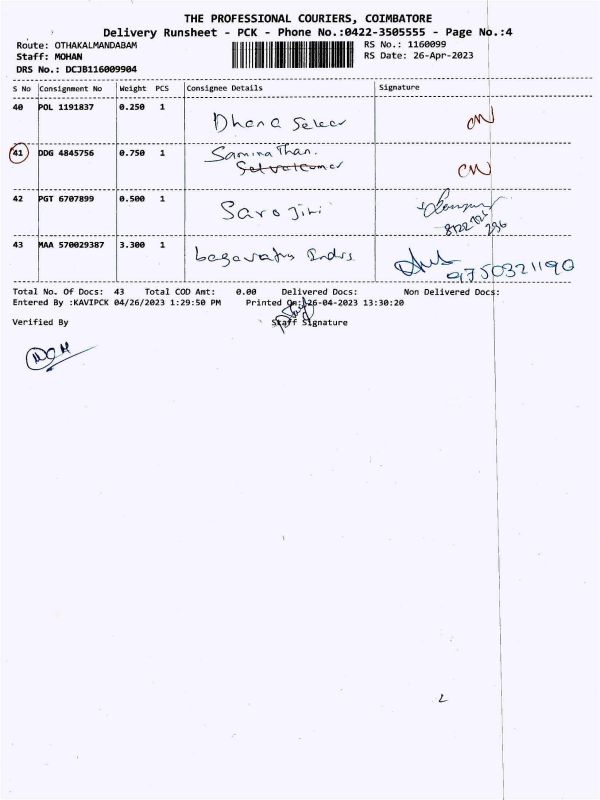 THE PROFESSIONAL COURIERS, COIMBATORE
Delivery Runsheet - PCK - Phone No.:0422-3505555 - Page No.:4
Route: OTHAKALMANDABAM
RS No.: 1160099
Staff: MOHAN
RS Date: 26-Apr-2023
DRS No.: DCJB116009904
S No Consignment No Weight PCS Consignee Details Signature
40 POL 1191837 0.250 1
Dhana Selear
CN
41 DDG 4845756 0.750 1 Saminathan.
CN
42 PGT 6707899 0.500 1 Sarojini
8122
296
43 MAA 570029387 3.300 1 bagavathy Indrs
9750321190
Total No. Of Docs: 43 Total COD Amt: 0.00 Delivered Docs: Non Delivered Docs:
Entered By :KAVIPCK 04/26/2023 1:29:50 PM Printed On: 26-04-2023 13:30:20
Verified By Staff Signature